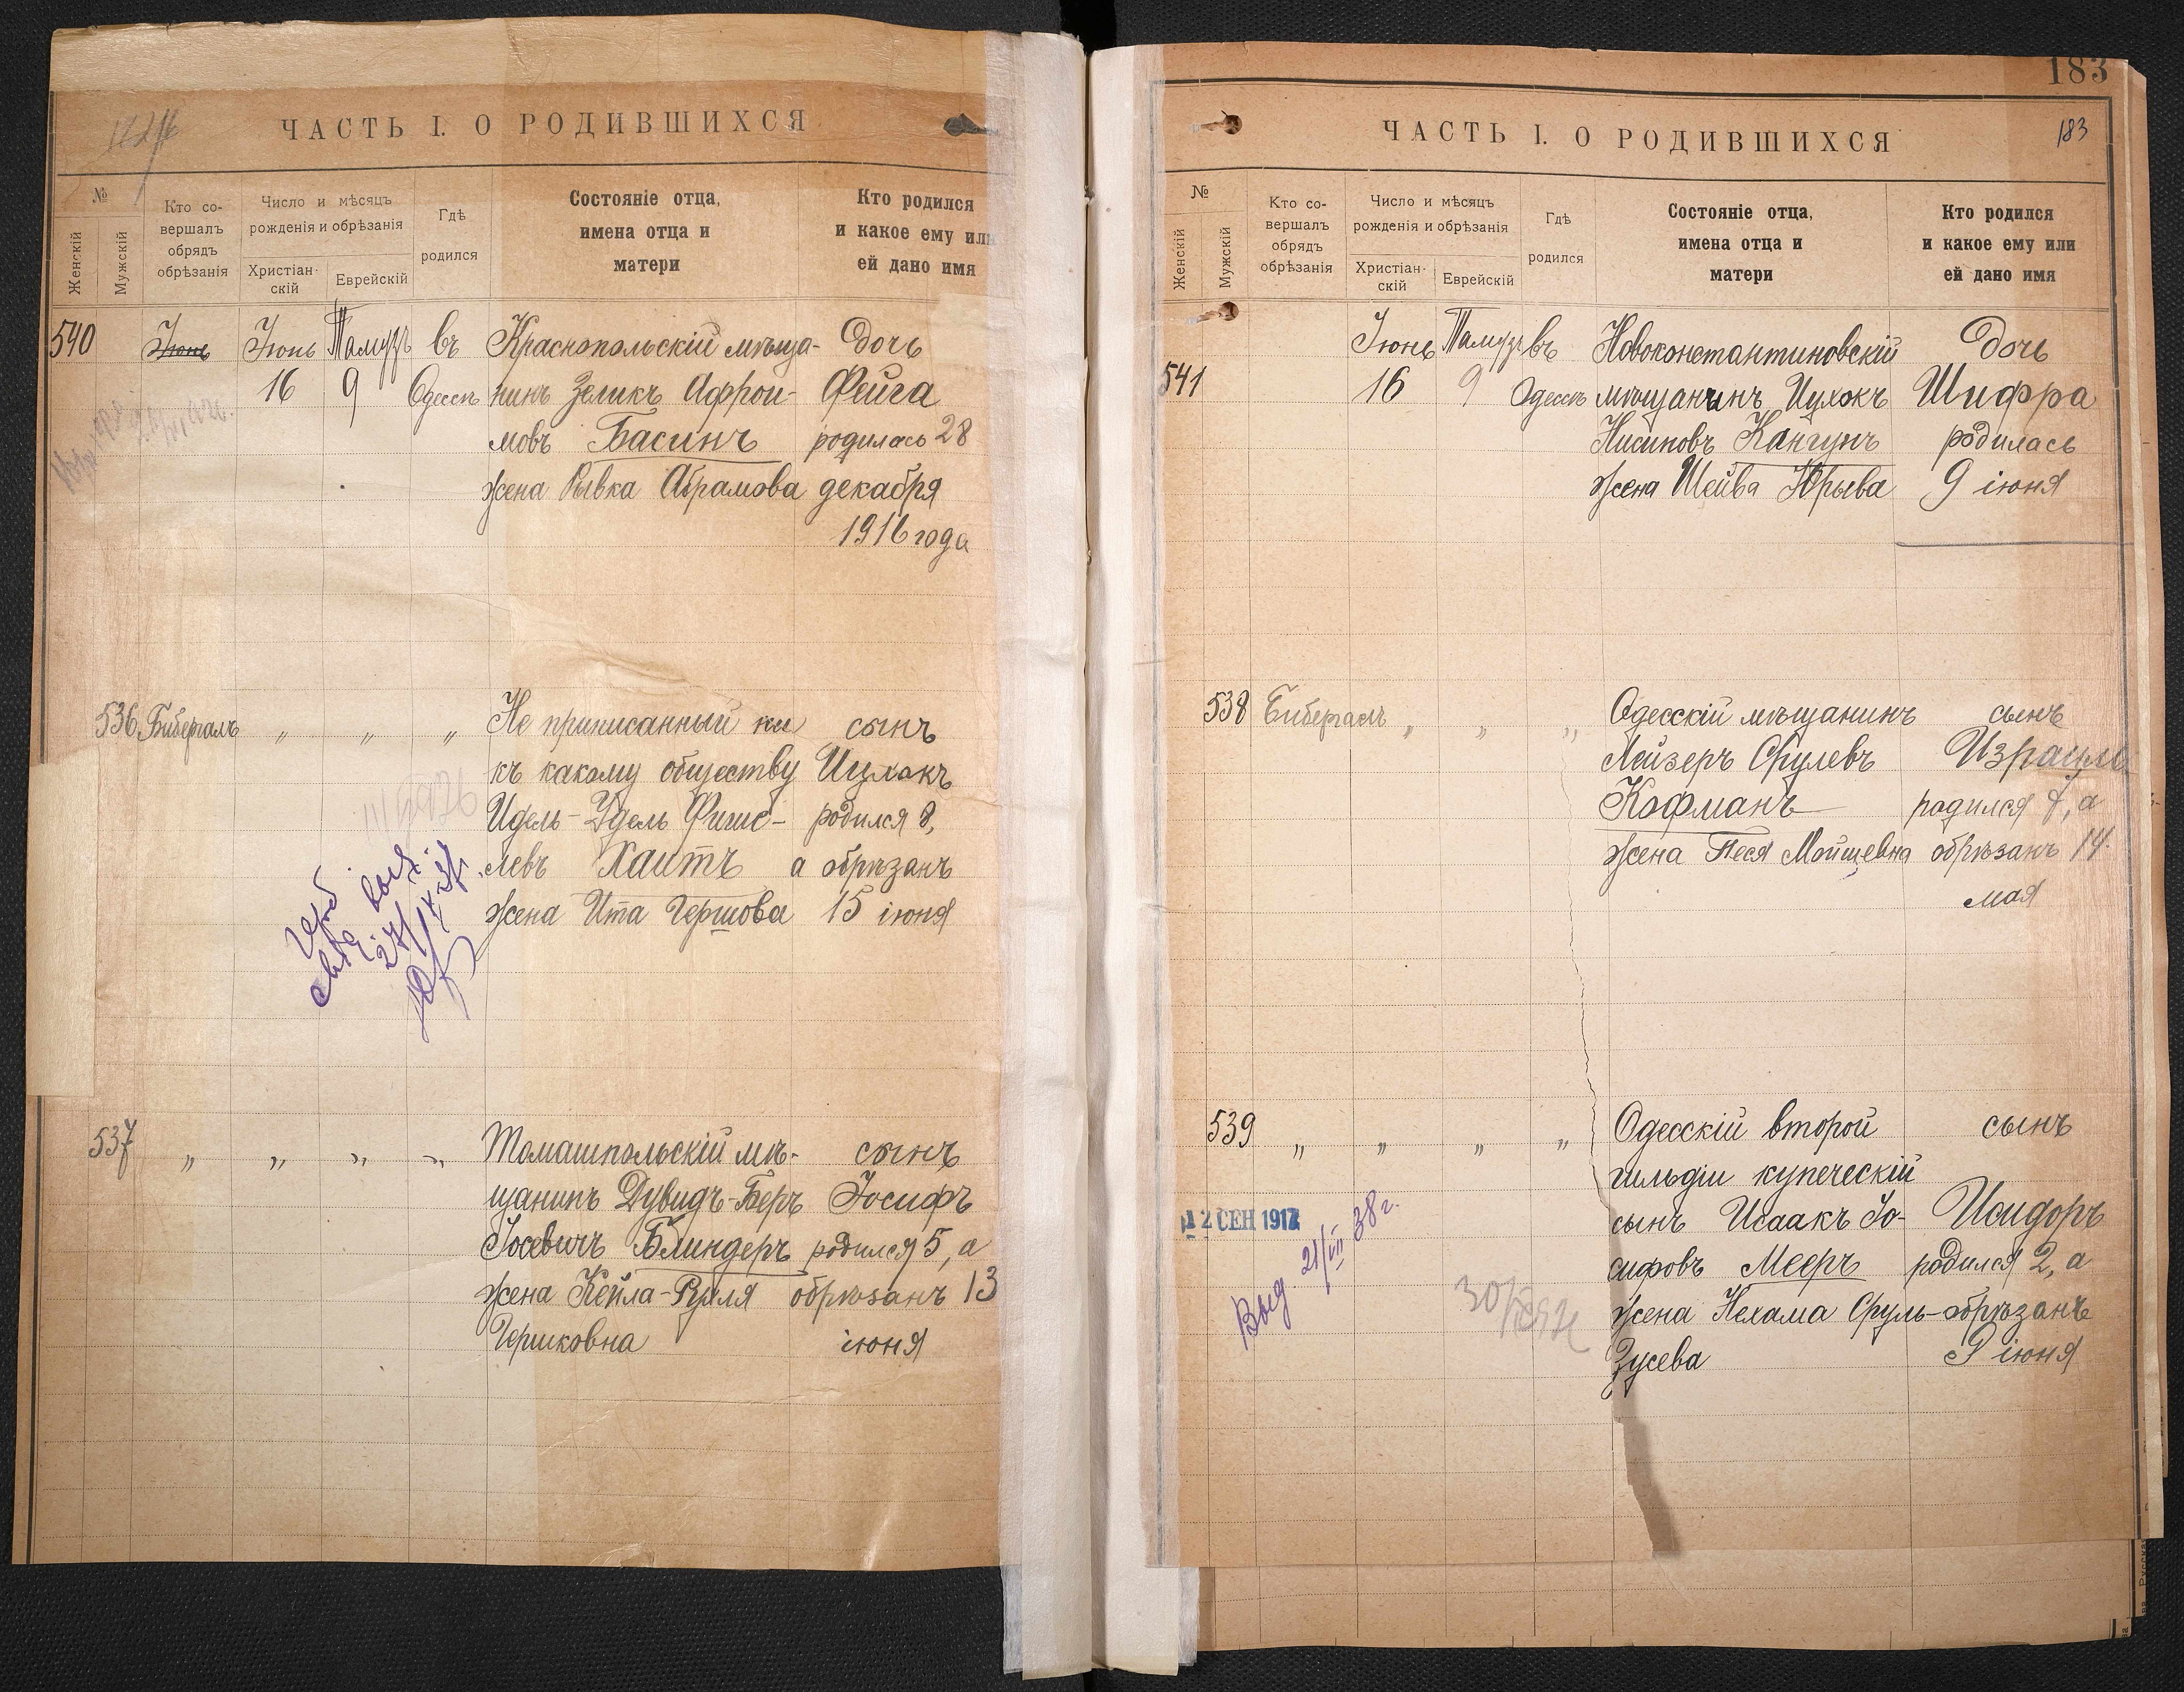 ЧАСТЬ I. О РОДИВШИХСЯ
№
Женскій
Мужскій
Кто со-
вершалъ
обрядъ
обрѣзанія
Число и мѣсяцъ
рожденія и обрѣзанія
Христіан-
скій
Еврейскій
Гдѣ
родился
Состояніе отца,
имена отца и
матери
Кто родился
и какое ему или
ей дано имя
540 Іюнь Іюнь Тамузъ въ Краснопольскій мѣща- Дочь
16 9 Одессѣ нинъ Зеликъ Афрои- Фейга
мовъ Басинъ родилась 28
жена Рывка Абрамова декабря
1916 года
536 Бибергалъ „ „ „ Не приписанный ни сынъ
къ какому обществу Ицхокъ
Идель-Удель Фиш- родился 8,
левъ Хаитъ а обрѣзанъ
жена Ита Гершова 15 іюня
27/IX
537 „ „ „ „ Томашпольскій мѣ- сынъ
щанинъ Дувидъ-Беръ Іосифъ
Іосевичъ Блиндеръ родился 5, а
жена Кейла-Руля обрѣзанъ 13
Гершковна іюня
183
ЧАСТЬ I. О РОДИВШИХСЯ
183
№
Женскій
Мужскій
Кто со-
вершалъ
обрядъ
обрѣзанія
Число и мѣсяцъ
рожденія и обрѣзанія
Христіан-
скій
Еврейскій
Гдѣ
родился
Состояніе отца,
имена отца и
матери
Кто родился
и какое ему или
ей дано имя
Іюнь Тамузъ въ Новоконстантиновскій Дочь
541 16 9 Одессѣ мѣщанинъ Ицхокъ Шифра
Нисиновъ Кангунъ родилась
жена Шейва Юрьева 9 іюня
538 Бибергалъ „ „ „ Одесскій мѣщанинъ сынъ
Лейзеръ Срулевъ Израиль
Кофманъ родился 7, а
жена Песя Мойшевна обрѣзанъ 14
мая
539 „ „ „ „ Одесскій второй сынъ
гильдіи купеческій
сынъ Исаакъ Іо- Исидоръ
сифовъ Мееръ родился 2, а
жена Нехама Сруль- обрѣзанъ
Зусева 9 іюня
12 СЕН 1917
Выд. 21/VII 38 г.